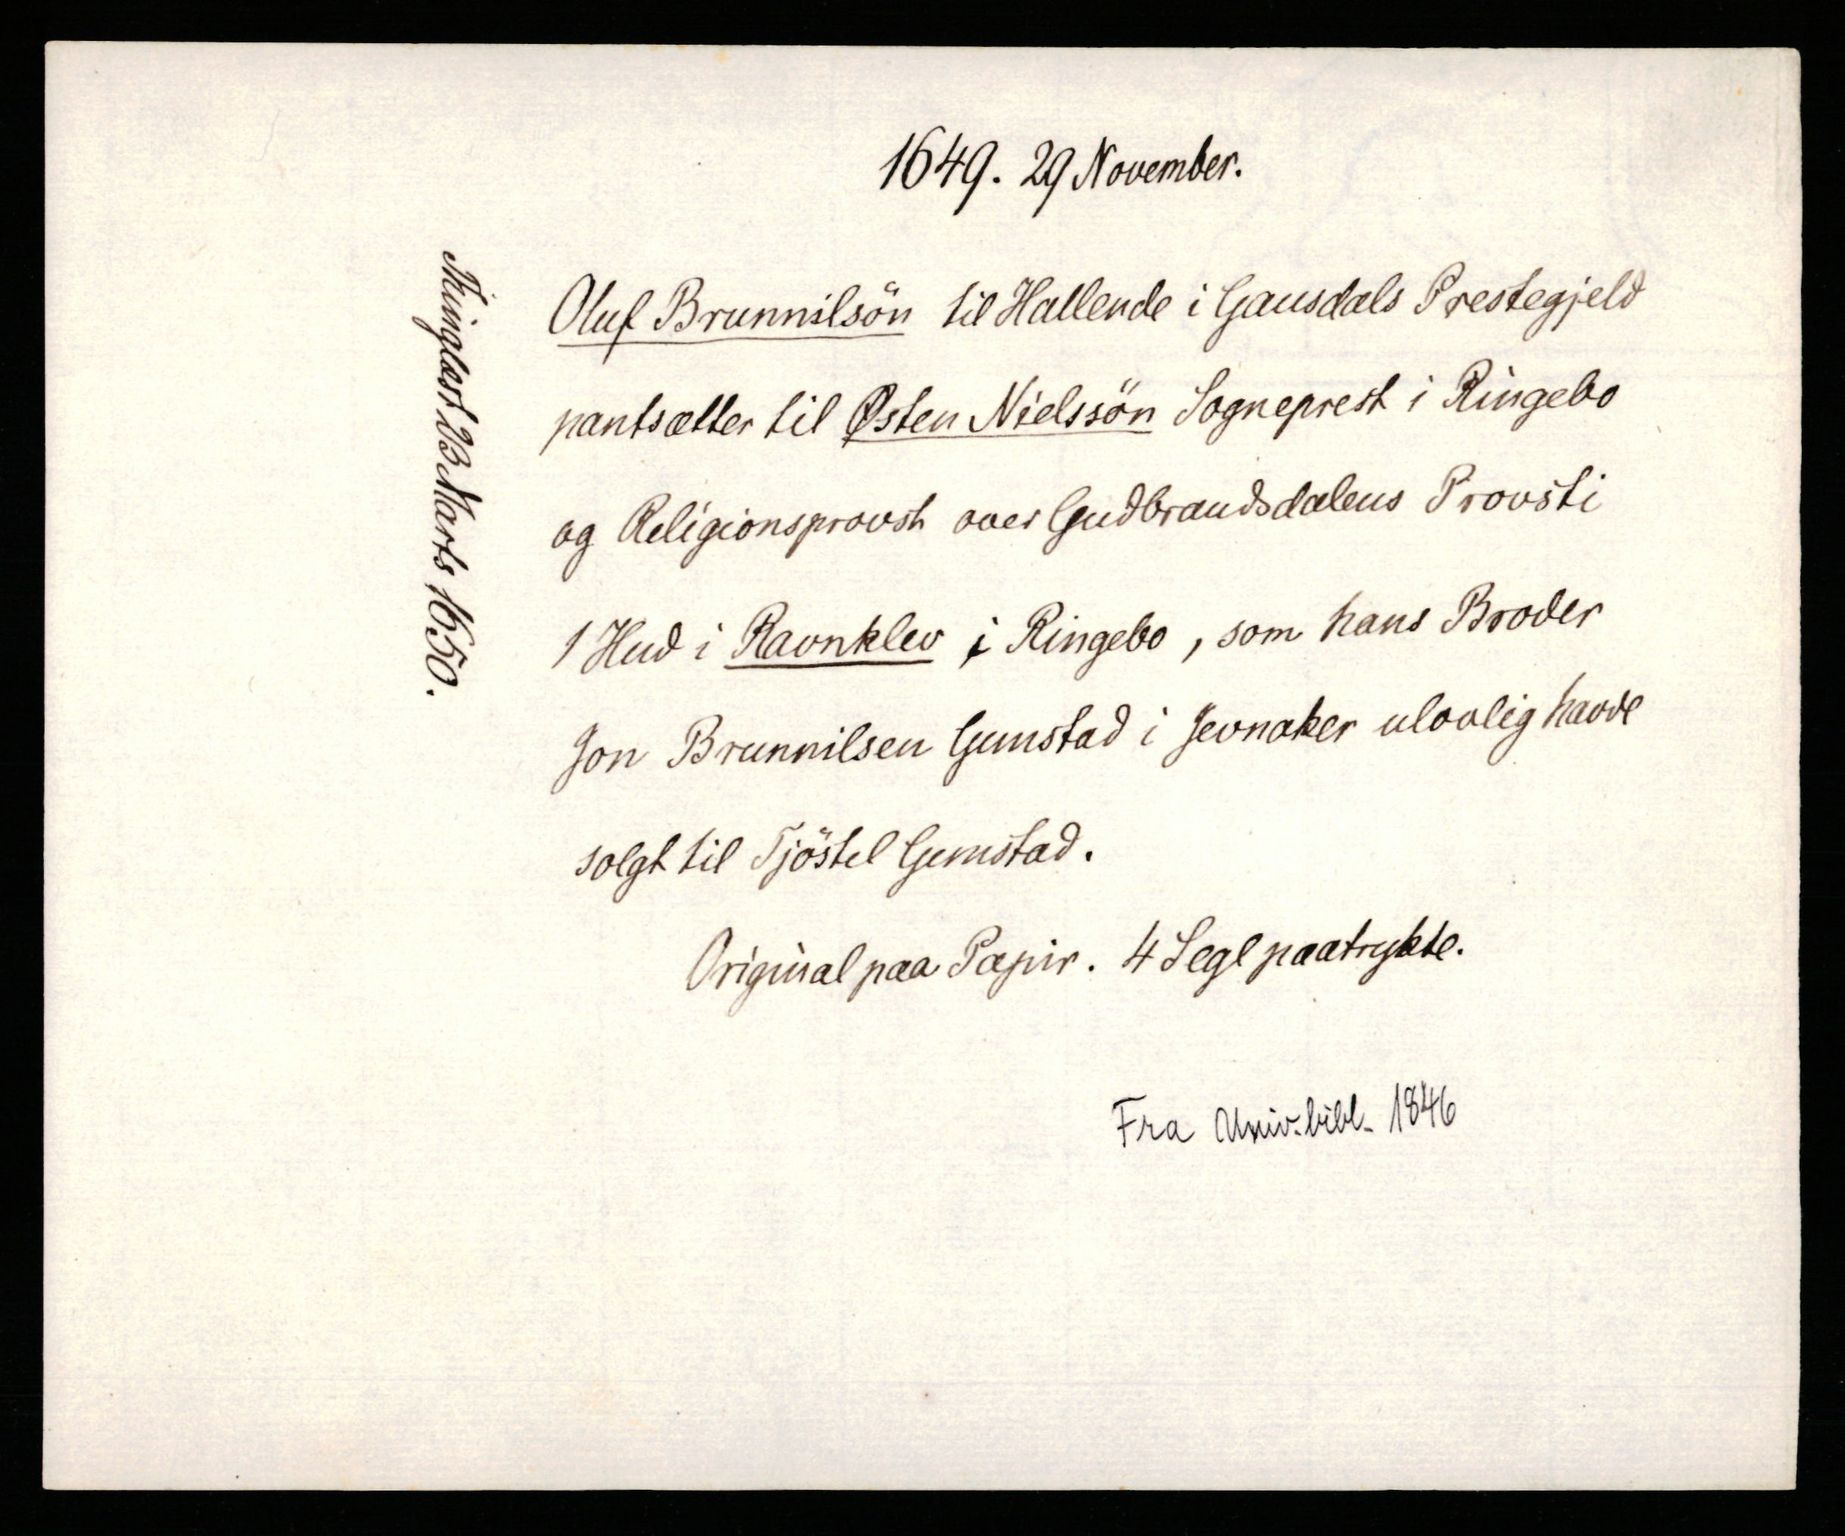 1649. 29 November.
Thinglæst 23 Marts 1650.
Oluf Brunnilsön til Hallende i Gausdals Prestegjeld
pantsætter til Østen Nielssön Sogneprest i Ringebo
og Religionsprovst over Gudbrandsdalens Provsti
1 Hud i Ravnklev i Ringebo, som hans Broder
Jon Brunnilsen Gumstad i Jevnaker ulovlig havde
solgt til Tjöstel Gumstad.
Original paa Papir. 4 Segl paatrykte.
Fra Univ.bibl. 1846